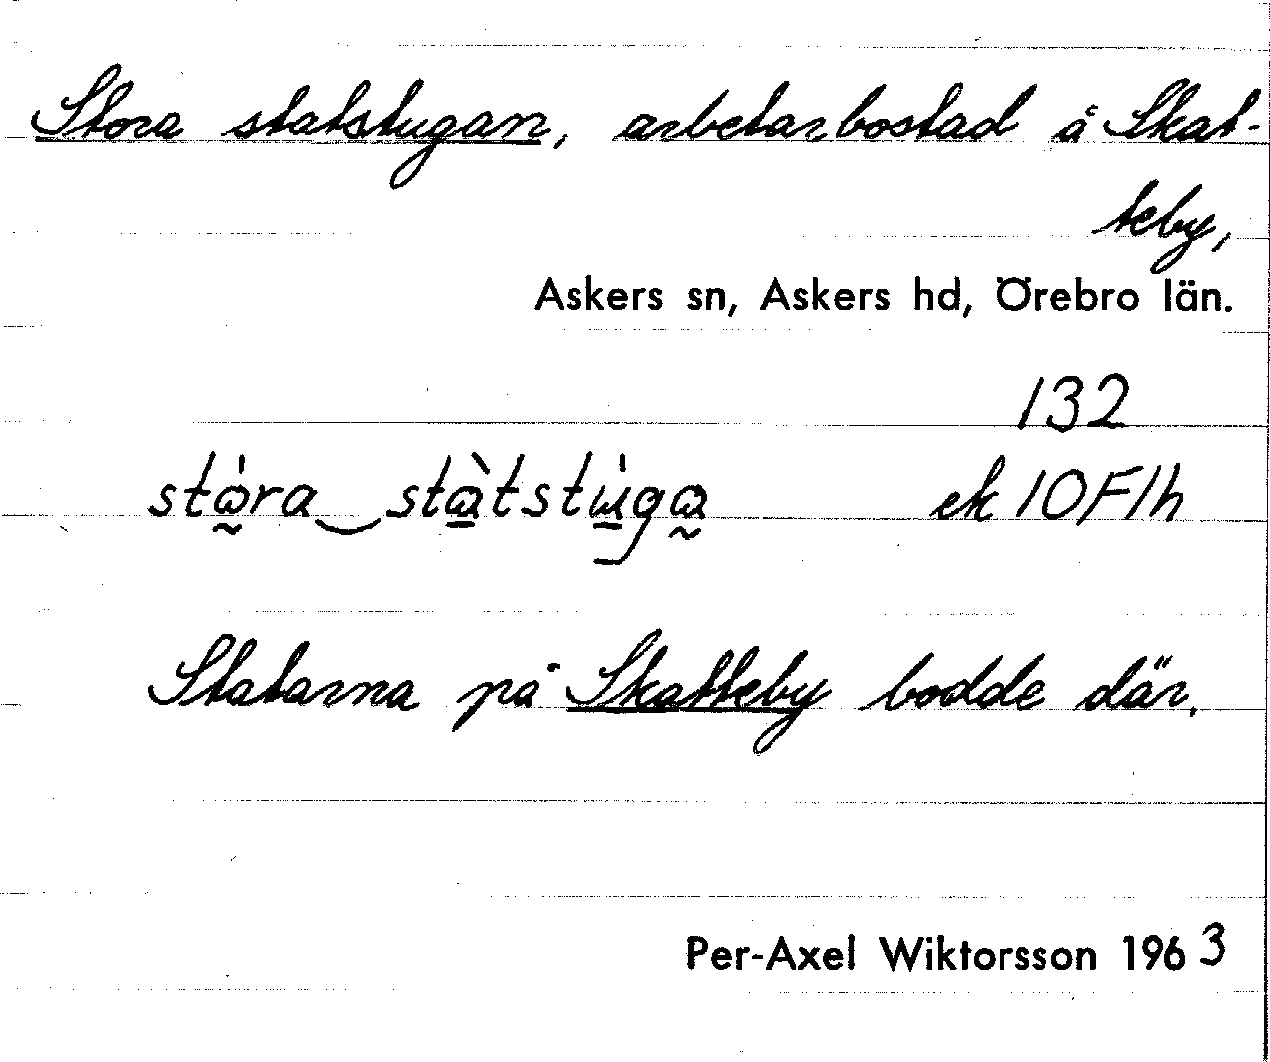 Stora statstugan, arbetarbostad å Skat-
teby,
Askers sn, Askers hd, Örebro län.
132
stora statstuga ek 10F1h
Statarna på Skatteby bodde där.
Per-Axel Wiktorsson 1963